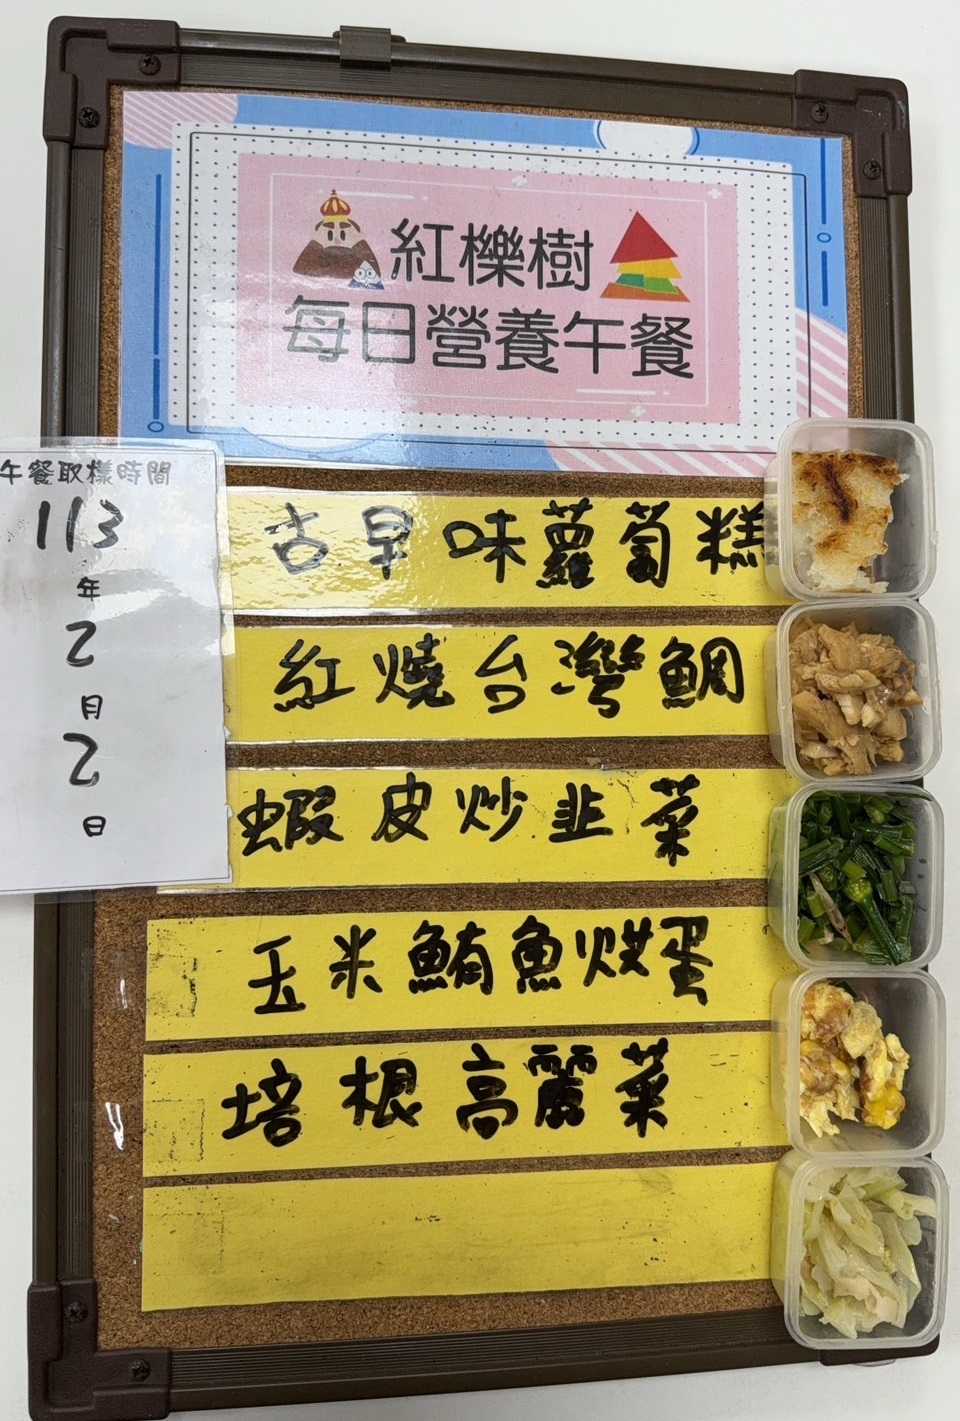 紅櫟樹
每日營養午餐
午餐取樣時間
113
年
2
月
2
日
古早味蘿蔔糕
紅燒台灣鯛
蝦皮炒韭菜
玉米鮪魚烘蛋
培根高麗菜